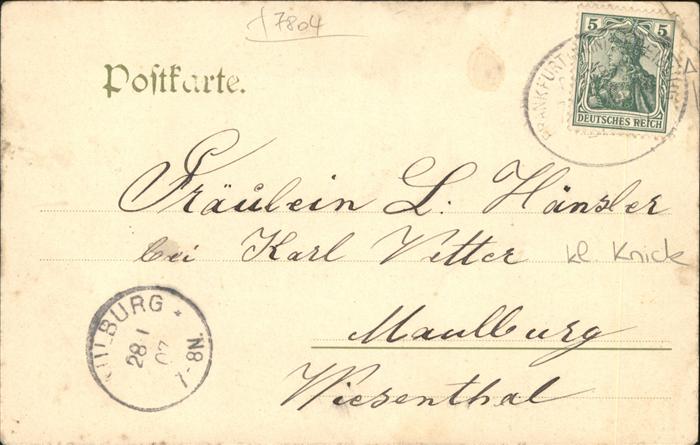 7804
5 5
DEUTSCHES REICH
FRANKFURT
Postkarte.
Fräulein L. Hänsler
bei Karl Vetter
kl. Knick
Maulburg
Wiesenthal
MAULBURG *
28 1
07
7-8N.